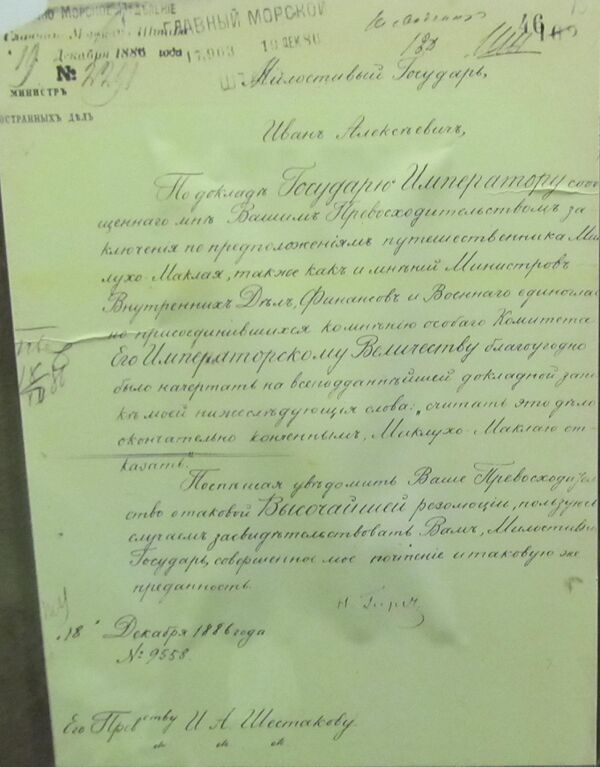 ГЛАВНЫЙ МОРСКОЙ
46
Главный Морской Штаб
19 Декабря 1886 года
17.903 19 ДЕК. 86
№ 2291
МИНИСТРЪ
ОСТРАННЫХЪ ДѢЛЪ
Милостивый Государь,
Иванъ Алексѣевичъ,
По докладѣ Государю Императору сооб
щеннаго мнѣ Вашимъ Превосходительствомъ за
ключенія по предположеніямъ путешественника Мик
лухо-Маклая, также какъ и мнѣній Министровъ
Внутреннихъ Дѣлъ, Финансовъ и Военнаго единоглас
но присоединившихся къ мнѣнію особаго Комитета
Его Императорскому Величеству благоугодно
было начертать на всеподданнѣйшей докладной запис
кѣ моей нижеслѣдующія слова: „считать это дѣло
окончательно конченнымъ, Миклухо-Маклаю от-
казать."
Поспѣшая увѣдомить Ваше Превосходитель
ство о таковой Высочайшей резолюціи, пользуюсь
случаемъ засвидѣтельствовать Вамъ, Милостивый
Государь, совершенное мое почтеніе и таковую же
преданность.
Н. Гирсъ
„18" Декабря 1886 года
№ 9558.
Его Прев-ству И. А. Шестакову.